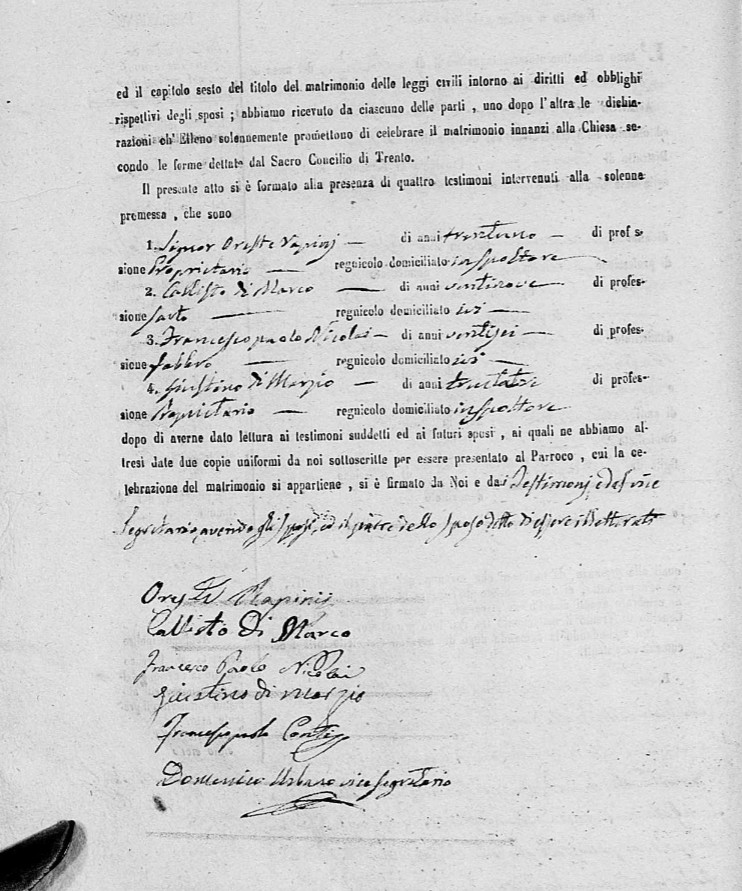 ed il capitolo sesto del titolo del matrimonio delle leggi civili intorno ai diritti ed obblighi
rispettivi degli sposi ; abbiamo ricevuto da ciascuno delle parti , uno dopo l'altra le dichia-
razioni ch' Elleno solennemente promettono di celebrare il matrimonio innanzi alla Chiesa se-
condo le forme dettate dal Sacro Concilio di Trento.
Il presente atto si è formato alla presenza di quattro testimoni intervenuti alla solenne
promessa , che sono
1. Signor Oreste Rapinij — di anni trentuno — di profes-
sione Proprietario — regnicolo domiciliato in Spoltore
2. Callisto di Marco — di anni ventinove — di profes-
sione Sarto — regnicolo domiciliato ivi —
3. Francescopaolo Nicolai — di anni ventisei — di profes-
sione fabbro — regnicolo domiciliato ivi —
4. Giustino di Marzio — di anni trentatre di profes-
sione Proprietario — regnicolo domiciliato in Spoltore
dopo di averne dato lettura ai testimoni suddetti ed ai futuri sposi , ai quali ne abbiamo al-
tresì date due copie uniformi da noi sottoscritte per essere presentato al Parroco , cui la ce-
lebrazione del matrimonio si appartiene , si è firmato da Noi e dai Testimonj, e del vice
Segretario, avendo gli Sposi, ed il padre dello Sposo detto di essere illetterati
Oreste Rapinij
Callisto Di Marco
Francesco Paolo Nicolai
Giustino di Marzio
Francescopaolo Conti
Domenico Urbano vice segretario